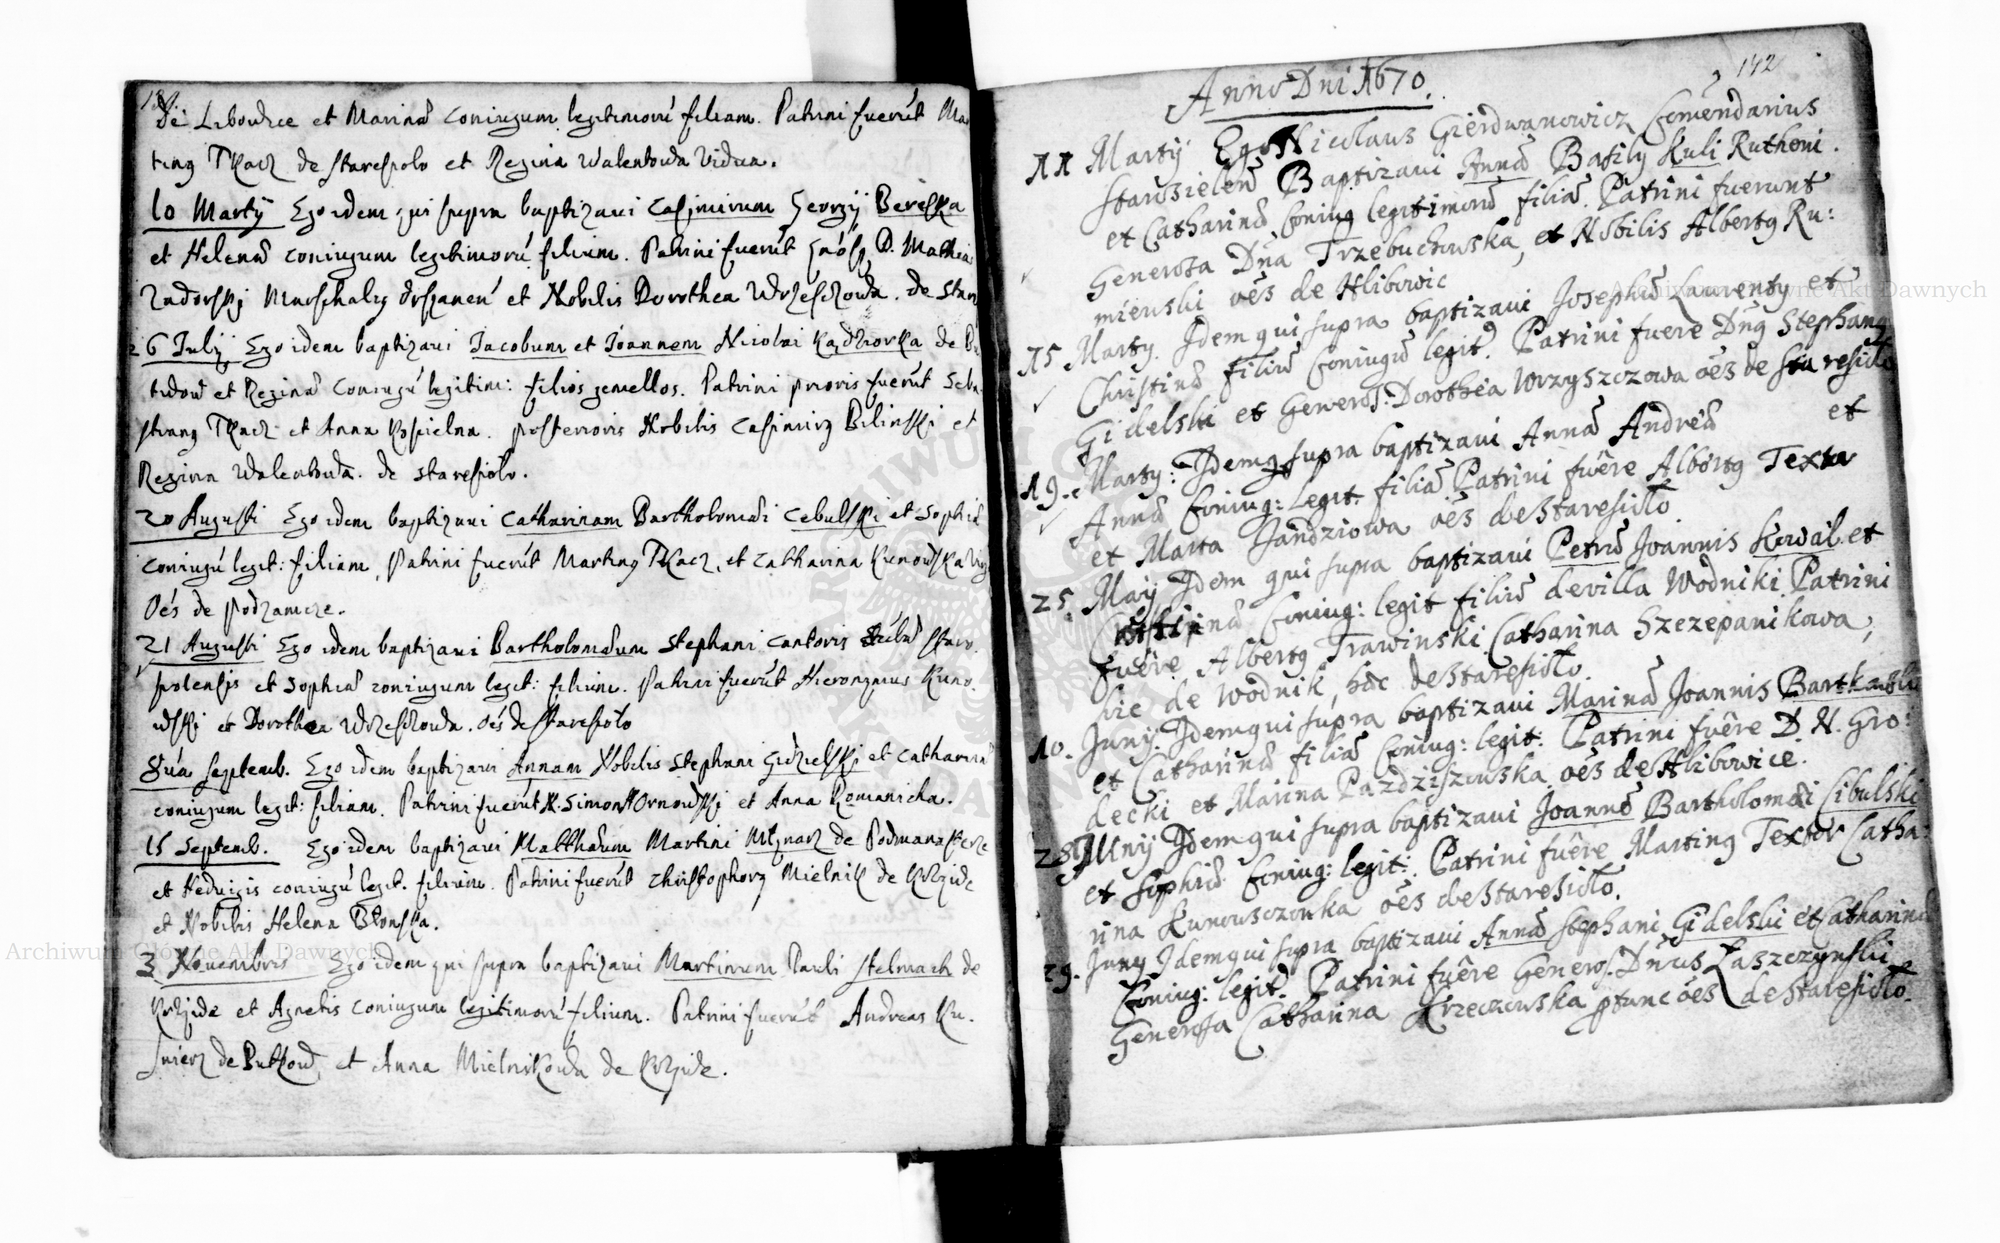 de Libowice et Marinæ coniugum legitimorũ filiam. Patrini fuerũt Mar
tinꝰ Tkacz de staresioło et Regina Walentowa Vidua.
10 Martÿ Ego idem qui supra baptizaui Casimirum Georgÿ Bereska
et Helenæ coniugum legitimorũ filium. Patrini fuerũt D. Mathias
Zadorskj et Nobilis Dorothea Wrzesczowa. de Star
26 July Ego idem baptizaui Jacobum et Joannem Nicolai Kądziorka de
et Reginæ Coniugũ legitim: filios gemellos. Patrini prioris fuerũt Seba
stianꝰ Tkacz et Anna Kosielna. posterioris Nobilis Casimirꝰ Bilinski et
Regina Walentowa. de staresioło.
20 Augusti Ego idem baptizaui Catharinam Bartholomæi Cebulski et Sophiæ
coniugũ legit: filiam. Patrini fuerũt Martinꝰ Tkacz, et Catharina Kunowska
Oẽs de podzamcze.
21 Augusti Ego idem baptizaui Bartholomæum Stephani Cantoris staro
polensis et Sophiæ coniugum legit: filium. Patrini fuerũt Hieronymus Kuno
wski et Dorothea Wrzesczowa. Oẽs de staresioło
Septemb. Ego idem baptizaui Annam Nobilis Stephani Gidzielski et Catharinæ
coniugum legit: filiam. Patrini fuerũt N. Simon Ornowski et Anna Romanicha.
15 Septemb. Ego idem baptizaui Matthæum Martini Młynarz de Podmanasterze
et Heduigis coniugũ legit. filium. Patrini fuerũt Christophorꝰ Mielnik de Krzyide
et Nobilis Helena Błonska.
3 Nouembris Ego idem qui supra baptizaui Martinum Pauli Stelmach de
Krzyide et Agnetis Coniugum legitimorũ filium. Patrini fuerũt Andreas Ku
snierz de Rutkow, et Anna Mielnikowa de Krzyide.
142
Anno Dni 1670.
11 Martÿ Ego Nicolaus Gierdwanowicz Comẽndarius
Starosielen Baptizaui Annã Basily Kuli Rutheni.
et Catharinæ Coniug legitimorũ filiã. Patrini fuerunt
Generosa Dña Trzebuchowska, et Nobilis Albertꝰ Ru:
mienski oẽs de Hlibowic
15 Marty. Idem qui supra baptizaui Josephũ Laurenty et
Christinæ filiũ Coniugũ legit. Patrini fuere Dnꝰ Stephanꝰ
Gidelski et Generos. Dorothea Wrzyszczowa oẽs de staresioło
19. Marty: Idem q supra baptizaui Annã Andreæ et
Annæ Coniug: legit. filiã Patrini fuêre Albertꝰ Texta
et Marta Jandziowa oẽs de Staresioło
25. May Idem qui supra baptizaui Petrũ Joannis Kowal et
Coniug: legit filiũ de villa Wodniki Patrini
fuêre Albertꝰ Trawinski Catharina Szczepanikowa,
hic de Wodnik, hæc de Staresioło.
10. Juny. Idem qui supra baptizaui Marinã Joannis
et Catharinæ filiã Coniug: legit: Patrini fuêre D. N. Gro:
decki et Marina Pazdziszowska oẽs de Hlibowice.
28 Juny Idem qui supra baptizaui Joannẽ Bartholomæi Cibulski
et Sophiæ Coniug: legit: Patrini fuêre Martinꝰ Textor Catha:
rina Kunowsczonka oẽs de Staresioło.
29. Juny Idem qui supra baptizaui Annã Stephani Gidelski et Catharinæ
Coniug: legit. Patrini fuêre Generos. Dnus Łaszczynski
Generosa Catharina Krzeczowska ptunc oẽs de Staresioło.